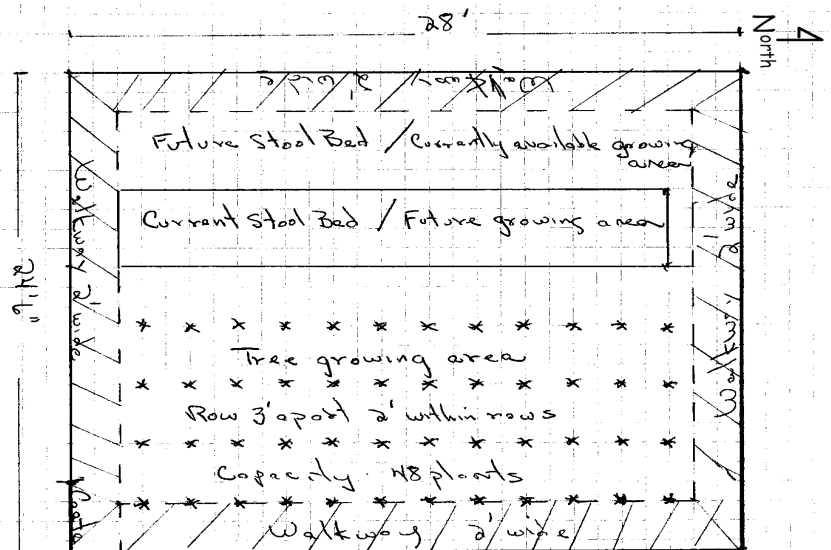 28'
North
Walkway 2' wide
Future Stool Bed / Currently available growing
area
Current Stool Bed / Future growing area
Walkway 2' wide
Walkway 2' wide
24'6"
Tree growing area
Row 3' apart 2' within rows
Capacity 48 plants
Walkway 2' wide